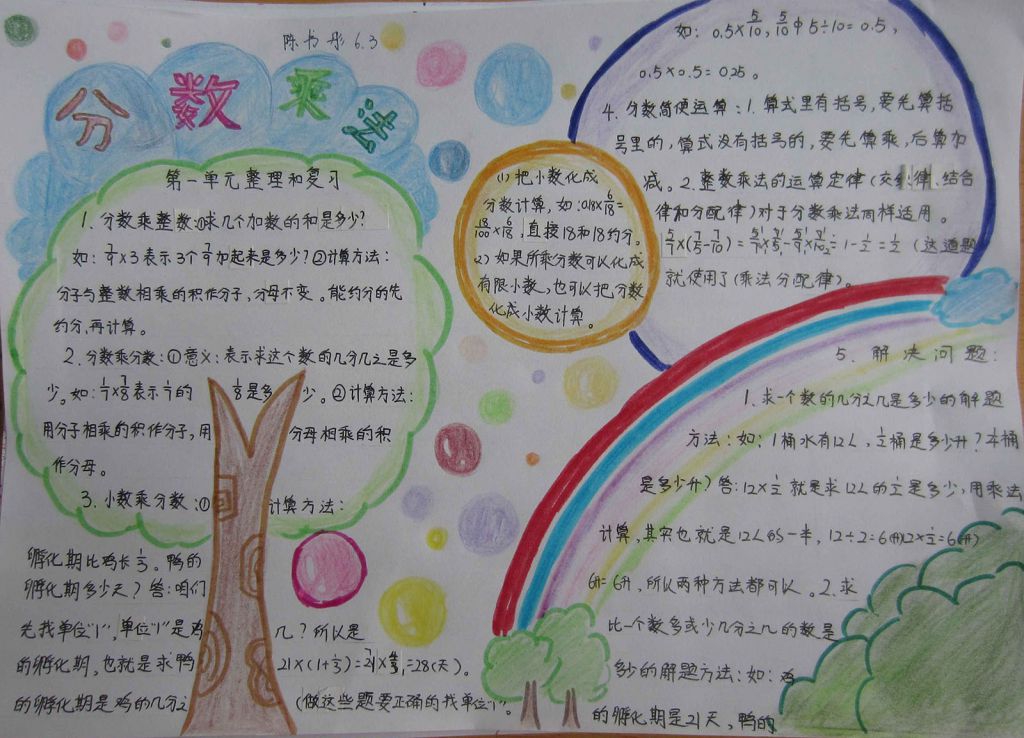 陈书彤 6.3
分数乘法
第一单元整理和复习
1. 分数乘整数:①求几个加数的和是多少?
如: 2/7×3表示3个2/7加起来是多少?②计算方法:
分子与整数相乘的积作分子,分母不变。能约分的先
约分,再计算。
2. 分数乘分数:①意义:表示求这个数的几分几之是多
少。如: 1/7×7/8表示1/7的 是多少。②计算方法:
用分子相乘的积作分子,用分母相乘的积
作分母。
3. 小数乘分数:①计算方法:
(1) 把小数化成
分数计算,如:0.18×6/18=
18/100×6/18 直接18和18约分。
(2) 如果所乘分数可以化成
有限小数,也可以把分数
化成小数计算。
如: 0.5×5/10, 5/10中5÷10=0.5,
0.5×0.5=0.25。
4. 分数简便运算:1. 算式里有括号,要先算括
号里的,算式没有括号的,要先算乘,后算加
减。2. 整数乘法的运算定律(交 律、结合
律和分配律)对于分数乘法同样适用。
=1-1/2=1/2 (这道题
就使用了(乘法分配律)。
5. 解决问题:
1. 求一个数的几分之几是多少的解题
方法:如: 1桶水有12L, 1/2桶是多少升? 桶
是多少升)答:12×1/2就是求12L的1/2是多少,用乘法
计算,其实也就是12L的一半, 12÷2=6(升)12×1/2=6(升)
6升=6升,所以两种方法都可以。2. 求
比一个数多或少几分之几的数是
多少的解题方法:如:鸡
的孵化期是21天,鸭的
孵化期比鸡长1/3。鸭的
孵化期多少天?答:咱们
先找单位"1",单位"1"是鸡
的孵化期,也就是求鸭
的孵化期是鸡的几分之
几?所以是
21×(1+1/3)=21×4/3=28(天)。
(做这些题要正确的找单位"1"。